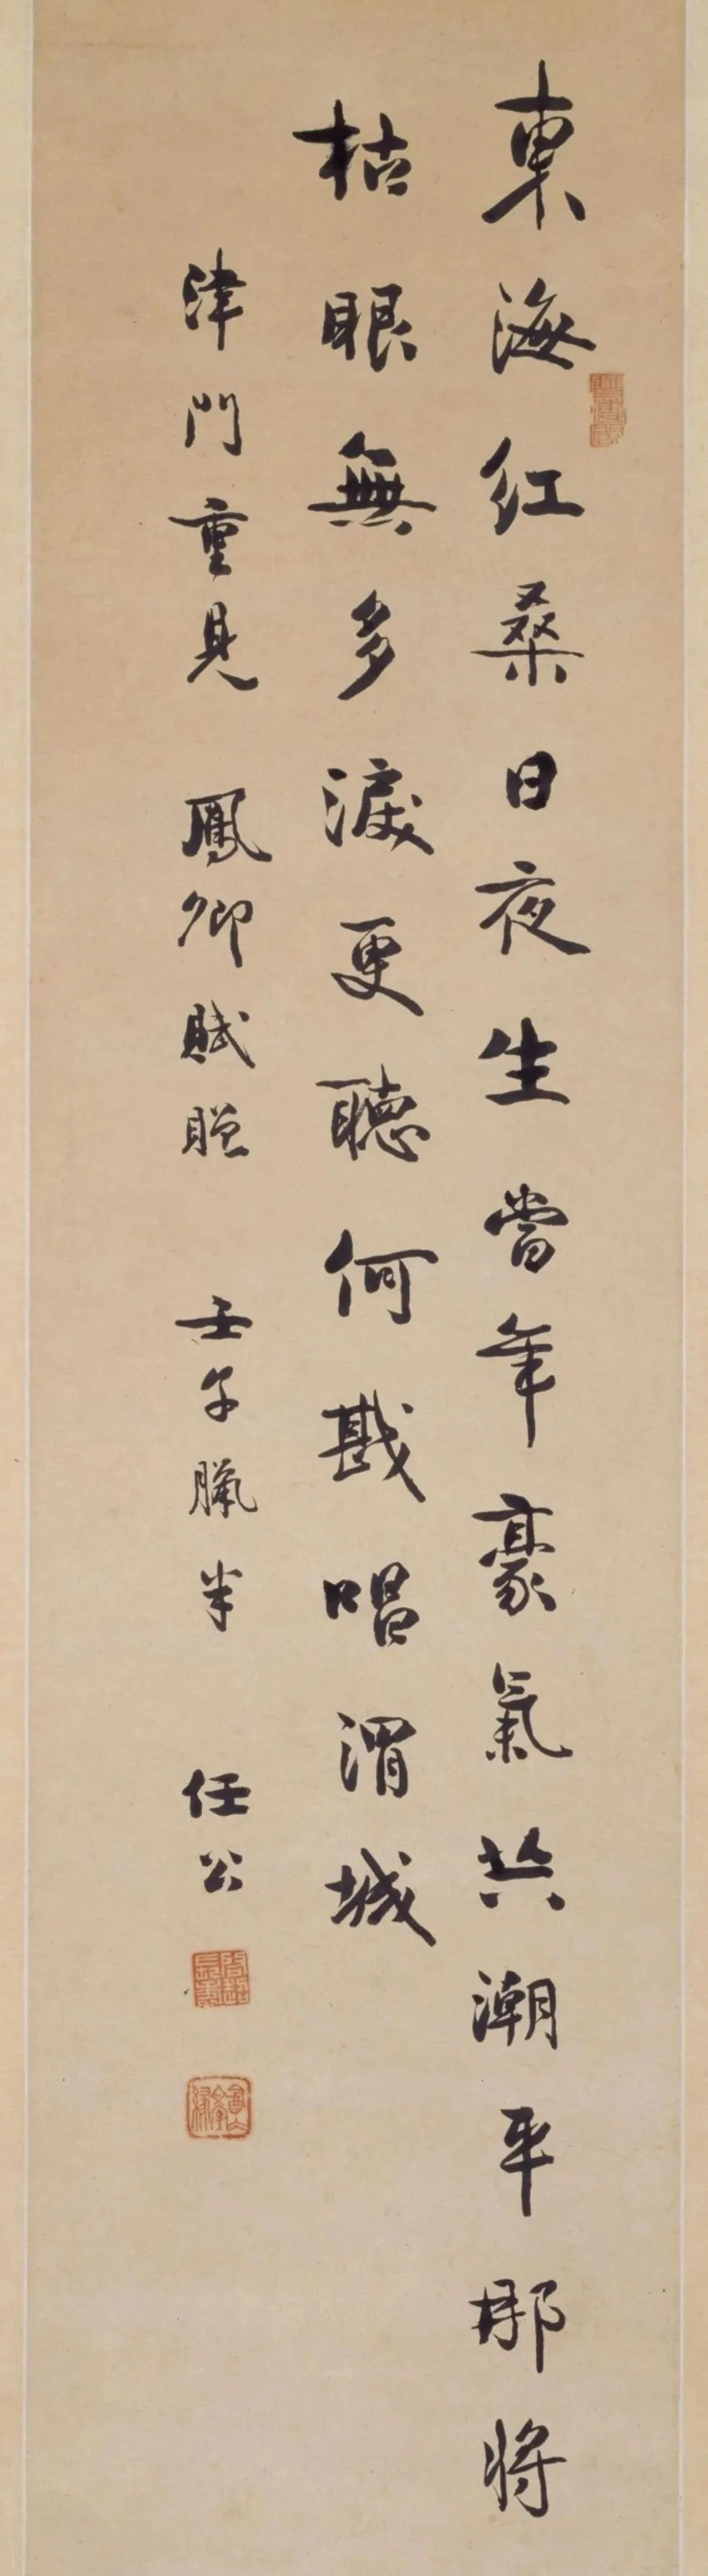 東海紅桑日夜生當年豪氣共潮平那將
枯眼無多淚更聽何戡唱渭城
津門重見 鳳卿賦贈 壬午臘半 任公